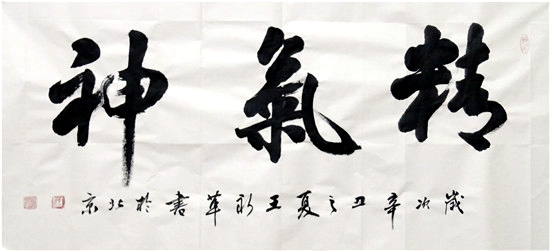 精氣神
歲次辛丑之夏王新華書於北京